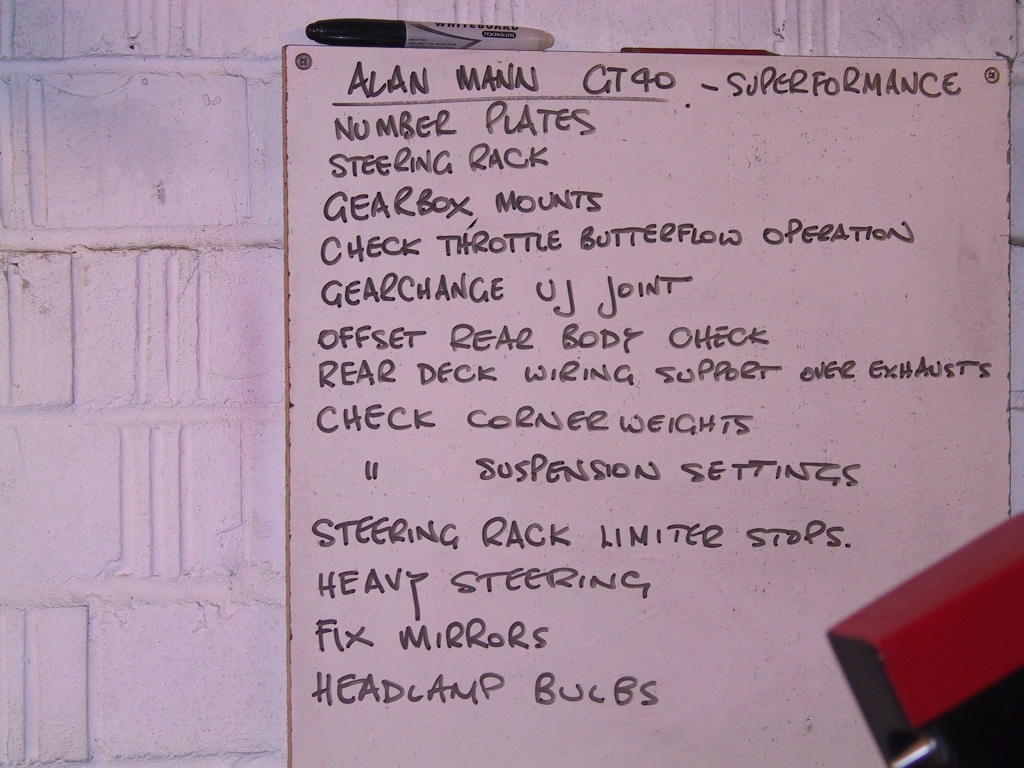 WHITEBOARD
MARKER
ALAN MANN GT40 - SUPERFORMANCE
NUMBER PLATES
STEERING RACK
GEARBOX MOUNTS
CHECK THROTTLE BUTTERFLOW OPERATION
GEARCHANGE UJ JOINT
OFFSET REAR BODY CHECK
REAR DECK WIRING SUPPORT OVER EXHAUSTS
CHECK CORNER WEIGHTS
" SUSPENSION SETTINGS
STEERING RACK LIMITER STOPS.
HEAVY STEERING
FIX MIRRORS
HEADLAMP BULBS